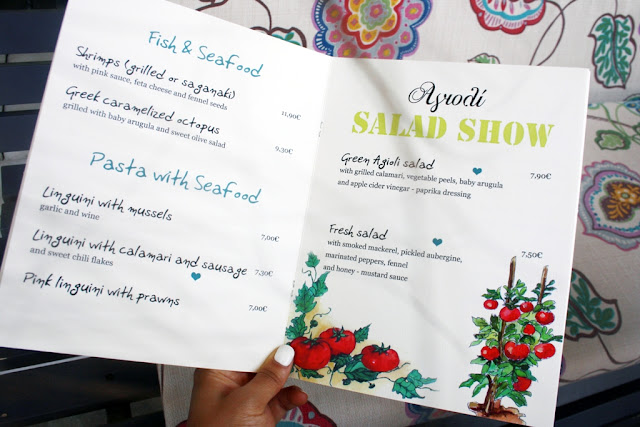 Fish & Seafood
Shrimps (grilled or saganaki)
with pink sauce, feta cheese and fennel seeds
11,90€
Greek caramelized octopus
grilled with baby arugula and sweet olive salad
9,30€
Pasta with Seafood
Linguini with mussels
garlic and wine
7,00€
Linguini with calamari and sausage
and sweet chili flakes
7,30€
Pink linguini with prawns
7,00€
Αγιολί
SALAD SHOW
Green Agioli salad
with grilled calamari, vegetable peels, baby arugula
and apple cider vinegar - paprika dressing
7,90€
Fresh salad
with smoked mackerel, pickled aubergine,
marinated peppers, fennel
and honey - mustard sauce
7,50€